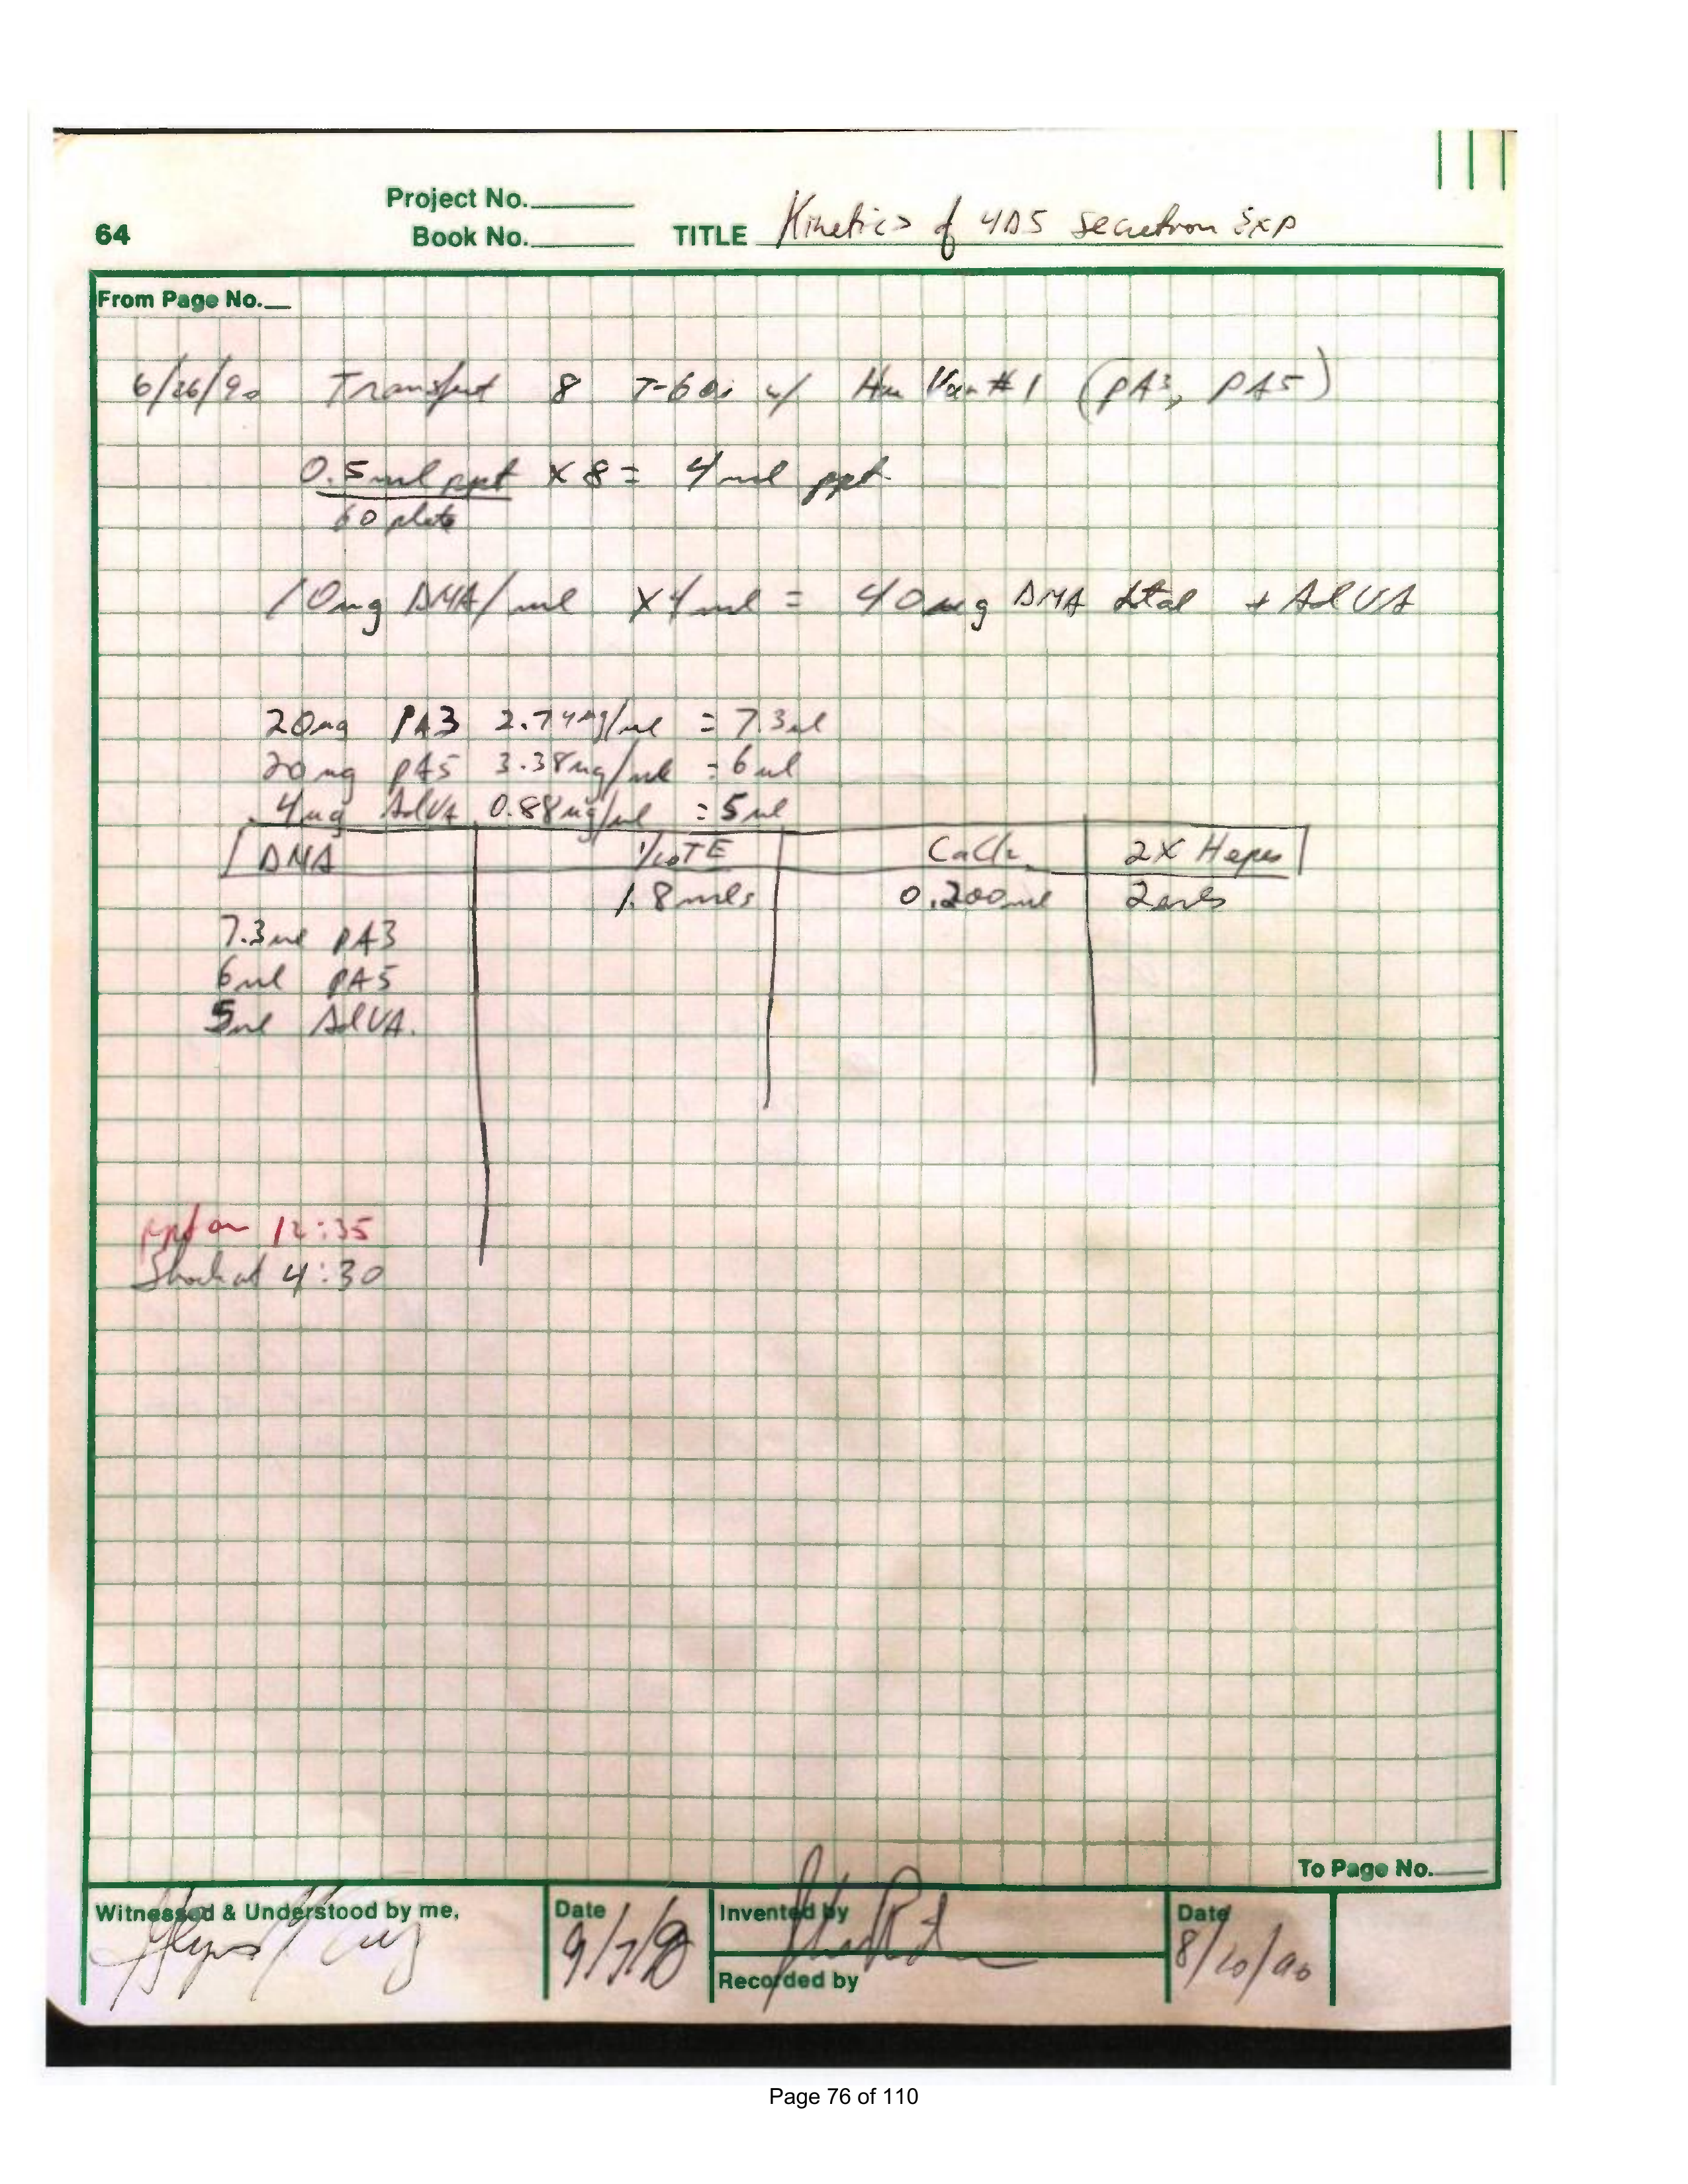 Project No.
64 Book No. TITLE Kinetics of 4D5 Secretion Exp
From Page No.
6/26/90 Transfect 8 T-60s w/ Hu Var #1 (pA3, pA5)
0.5ml ppt x 8 = 4ml ppt
60 plate
10ug DNA/ml x 4ml = 40ug DNA total + AdVA
20ug pA3 2.74ug/ul = 7.3ul
20ug pA5 3.38ug/ul = 6ul
4ug AdVA 0.88ug/ul = 5ul
DNA 1/10TE CaCl2 2X Hepes
1.8mls 0.200ml 2mls
7.3ul pA3
6ul pA5
5ul AdVA.
ppt on 12:35
Shock at 4:30
To Page No.
Witnessed & Understood by me, Date Invented by Date
9/7/90 8/10/90
Recorded by
Page 76 of 110